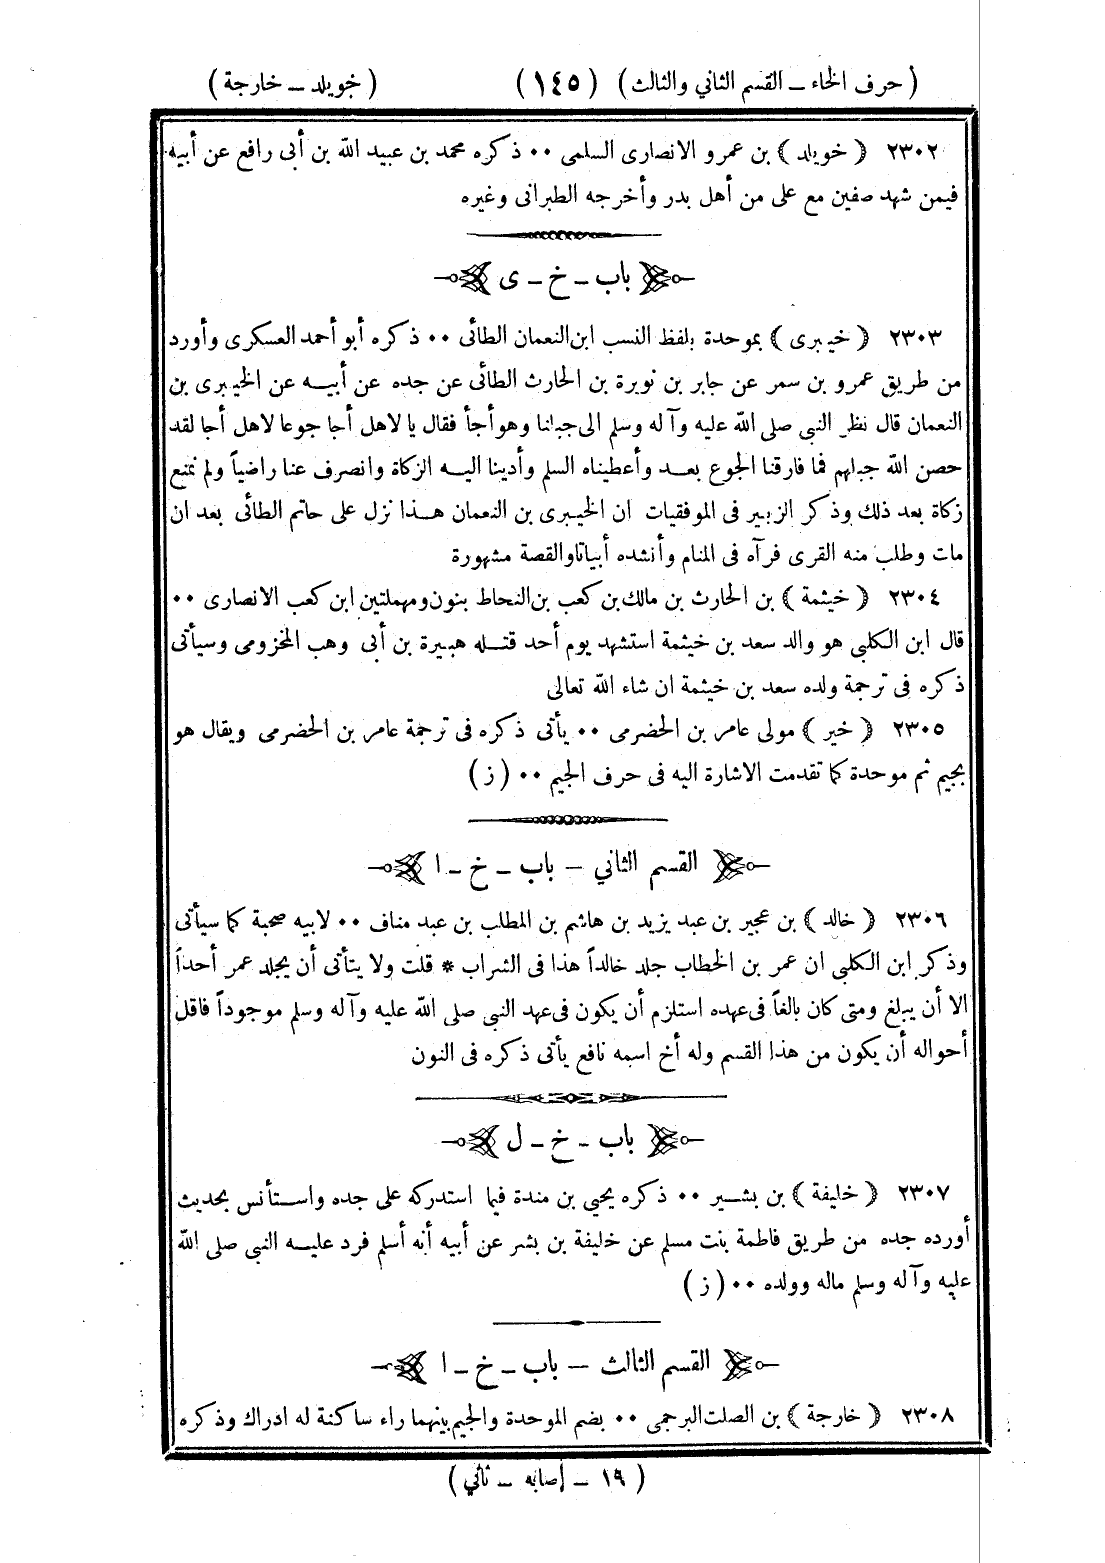 ( حرف الخاء ــ القسم الثاني والثالث ) ( ١٤٥ ) ( خويلد ــ خارجة )
٢٣٠٢ ( خويلد ) بن عمرو الانصارى السلمى ٠٠ ذكره محمد بن عبيد الله بن أبى رافع عن أبيه
فيمن شهد صفين مع على من أهل بدر وأخرجه الطبرانى وغيره
باب ـ خ ـ ى
٢٣٠٣ ( خيبرى ) بموحدة بلفظ النسب ابن النعمان الطائى ٠٠ ذكره أبو أحمد العسكرى وأورد
من طريق عمرو بن سمر عن جابر بن نويرة بن الحارث الطائى عن جده عن أبيه عن الخيبرى بن
النعمان قال نظر النبى صلى الله عليه وآله وسلم الى جبلنا وهو أجأ فقال يا لاهل أجا جوعا لاهل أجا لقد
حصن الله جبلهم فما فارقنا الجوع بعد وأعطيناه السلم وأدينا اليه الزكاة وانصرف عنا راضياً ولم نمنع
زكاة بعد ذلك وذكر الزبير فى الموفقيات ان الخيبرى بن النعمان هذا نزل على حاتم الطائى بعد ان
مات وطلب منه القرى فرآه فى المنام وأنشده أبياتا والقصة مشهورة
٢٣٠٤ ( خيثمة ) بن الحارث بن مالك بن كعب بن النحاط بنون ومهملتين ابن كعب الانصارى ٠٠
قال ابن الكلبى هو والد سعد بن خيثمة استشهد يوم أحد قتله هبيرة بن أبى وهب المخزومى وسيأتى
ذكره فى ترجمة ولده سعد بن خيثمة ان شاء الله تعالى
٢٣٠٥ ( خير ) مولى عامر بن الحضرمى ٠٠ يأتى ذكره فى ترجمة عامر بن الحضرمى ويقال هو
بجيم ثم موحدة كما تقدمت الاشارة اليه فى حرف الجيم ٠٠ ( ز )
القسم الثاني – باب ـ خ ـ ا
٢٣٠٦ ( خالد ) بن عجير بن عبد يزيد بن هاشم بن المطلب بن عبد مناف ٠٠ لابيه صحبة كما سيأتى
وذكر ابن الكلبى ان عمر بن الخطاب جلد خالداً هذا فى الشراب * قلت ولا يتأتى أن يجلد عمر أحداً
الا أن يبلغ ومتى كان بالغاً فى عهده استلزم أن يكون فى عهد النبى صلى الله عليه وآله وسلم موجوداً فاقل
أحواله أن يكون من هذا القسم وله أخ اسمه نافع يأتى ذكره فى النون
باب ـ خ ـ ل
٢٣٠٧ ( خليفة ) بن بشير ٠٠ ذكره يحيى بن مندة فيما استدركه على جده واستأنس بحديث
أورده جده من طريق فاطمة بنت مسلم عن خليفة بن بشر عن أبيه أنه أسلم فرد عليه النبى صلى الله
عليه وآله وسلم ماله وولده ٠٠ ( ز )
القسم الثالث – باب ـ خ ـ ا
٢٣٠٨ ( خارجة ) بن الصلت البرجمى ٠٠ بضم الموحدة والجيم بينهما راء ساكنة له ادراك وذكره
( ١٩ ــ إصابه ــ ثاني )